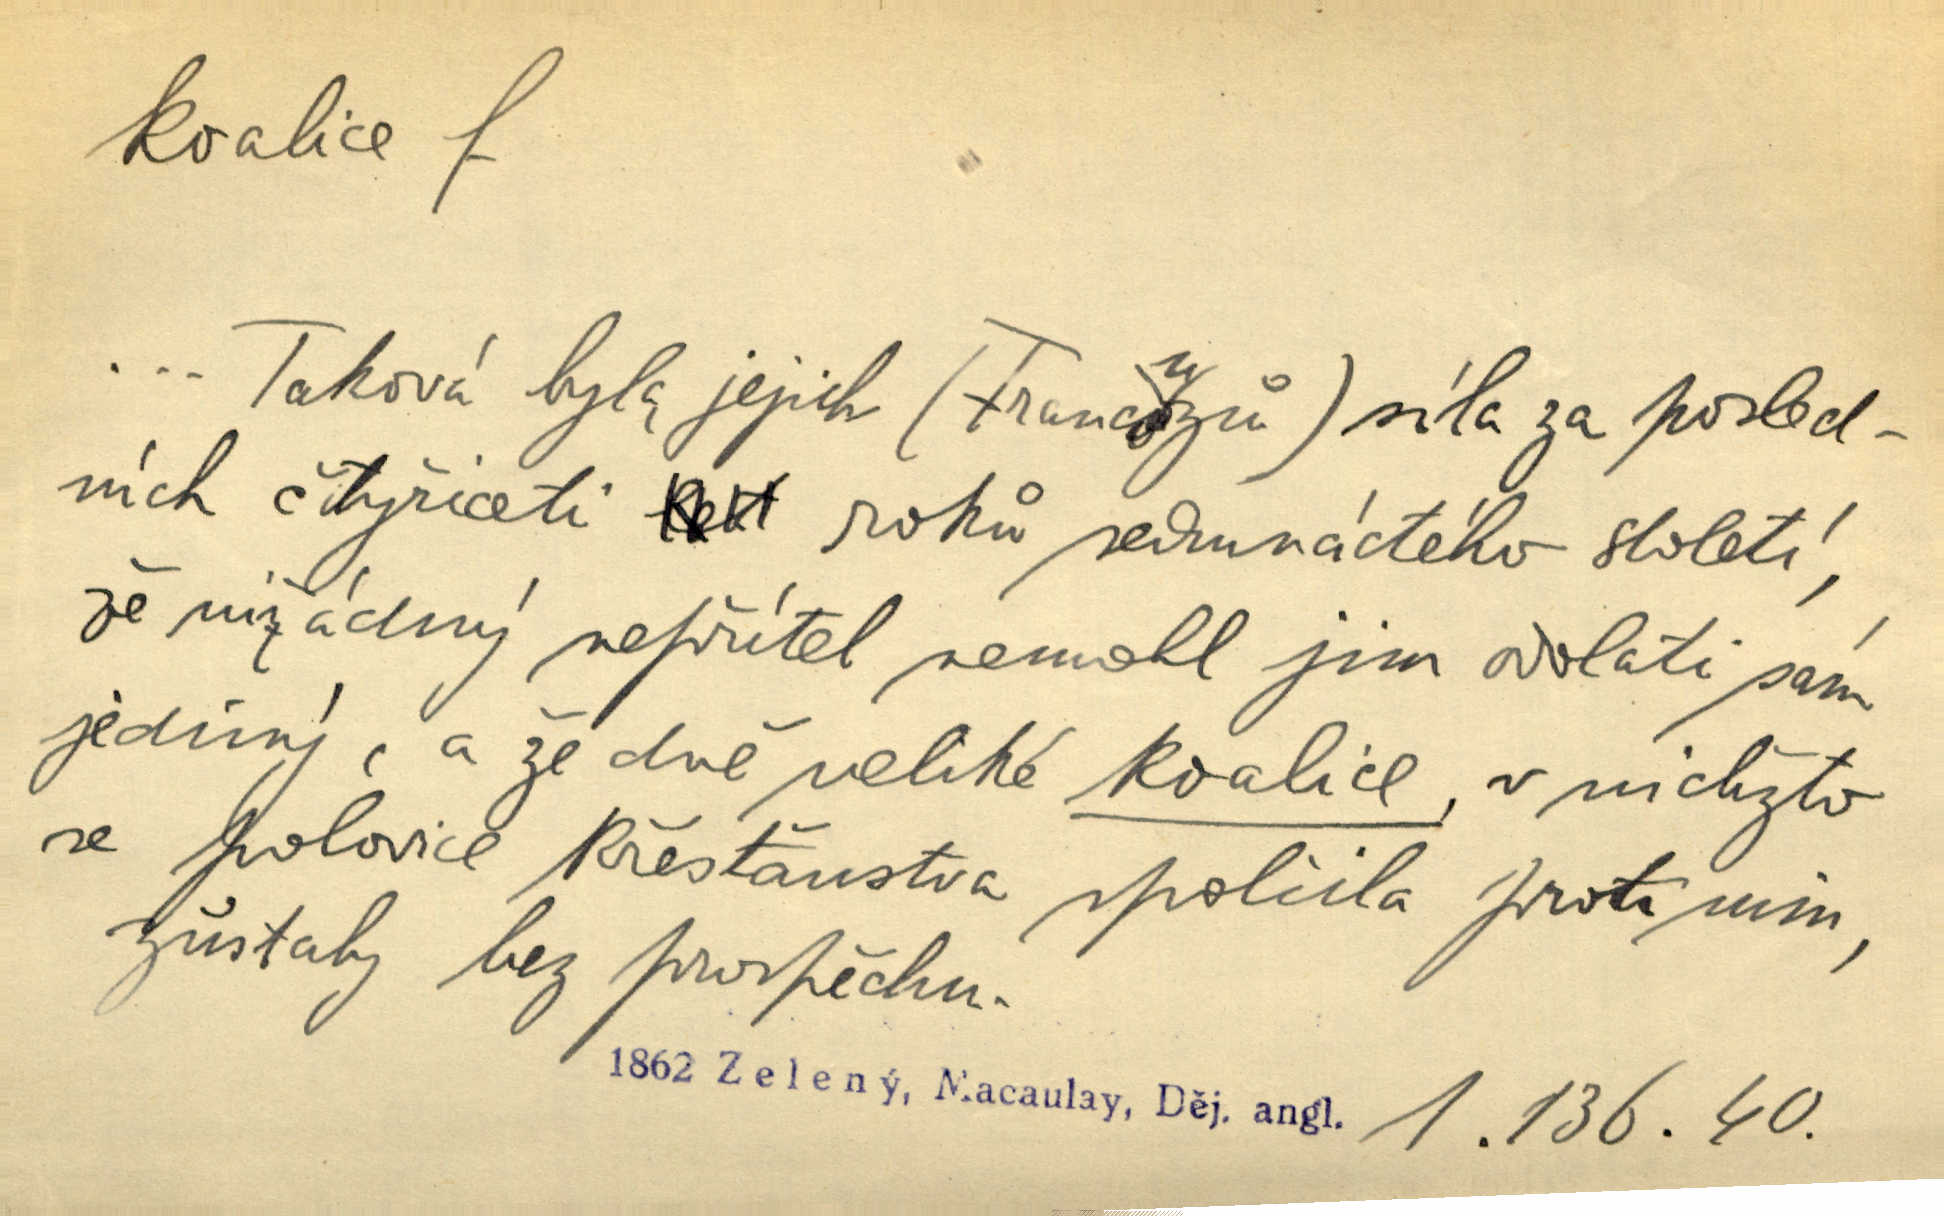 koalice f
... Taková byla jejich (Francouzů) síla za posled-
ních čtyřiceti roků sedmnáctého století,
že nižádný nepřítel nemohl jim odolati sám
jediný, a že dvě veliké koalice, v nichžto
se polovice křesťanstva spolčila proti nim,
zůstaly bez prospěchu.
1862 Zelený, Macaulay, Děj. angl. 1.136.40.